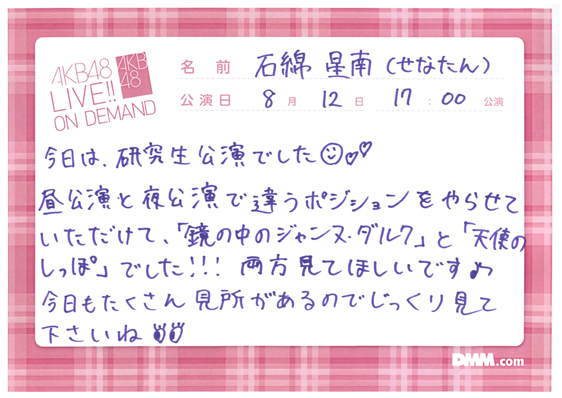 AKB48
LIVE!!
ON DEMAND
AKB
48
名前 石綿 星南 (せなたん)
公演日 8月 12日 17:00 公演
今日は、研究生公演でした
昼公演と夜公演で違うポジションをやらせて
いただけて、「鏡の中のジャンヌ・ダルク」と「天使の
しっぽ」でした!!! 両方見てほしいです♪
今日もたくさん見所があるのでじっくり見て
下さいね
DMM.com